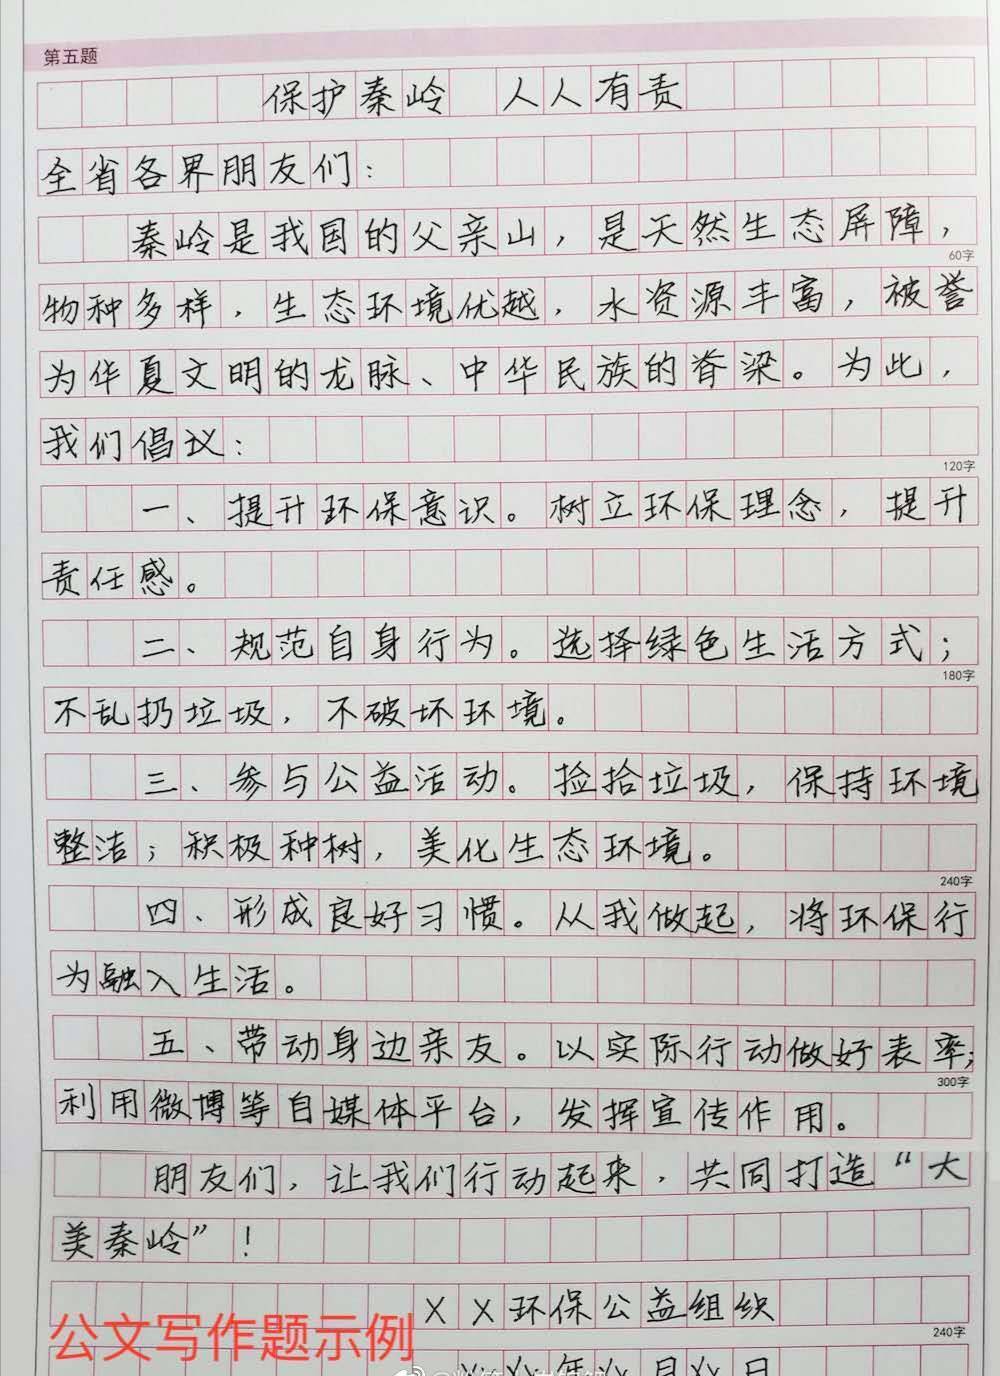 第五题
保护秦岭 人人有责
全省各界朋友们：
秦岭是我国的父亲山，是天然生态屏障，
60字
物种多样，生态环境优越，水资源丰富，被誉
为华夏文明的龙脉、中华民族的脊梁。为此，
我们倡议：
120字
一、提升环保意识。树立环保理念，提升
责任感。
二、规范自身行为。选择绿色生活方式；
180字
不乱扔垃圾，不破坏环境。
三、参与公益活动。捡拾垃圾，保持环境
整洁；积极种树，美化生态环境。
240字
四、形成良好习惯。从我做起，将环保行
为融入生活。
五、带动身边亲友。以实际行动做好表率；
300字
利用微博等自媒体平台，发挥宣传作用。
朋友们，让我们行动起来，共同打造“大
美秦岭”！
XX环保公益组织
240字
公文写作题示例
XX年XX月XX日